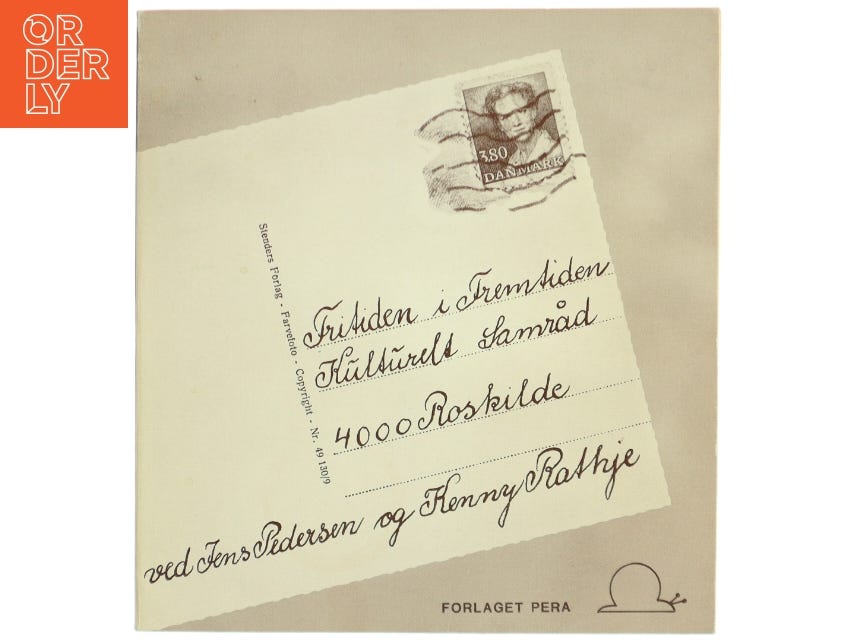 OR
DER
LY
3.80
DANMARK
Stenders Forlag - Farvefoto - Copyright - Nr. 49 130/9
Fritiden i Fremtiden
Kulturelt Samråd
4000 Roskilde
ved Jens Pedersen og Kenny Rathje
FORLAGET PERA